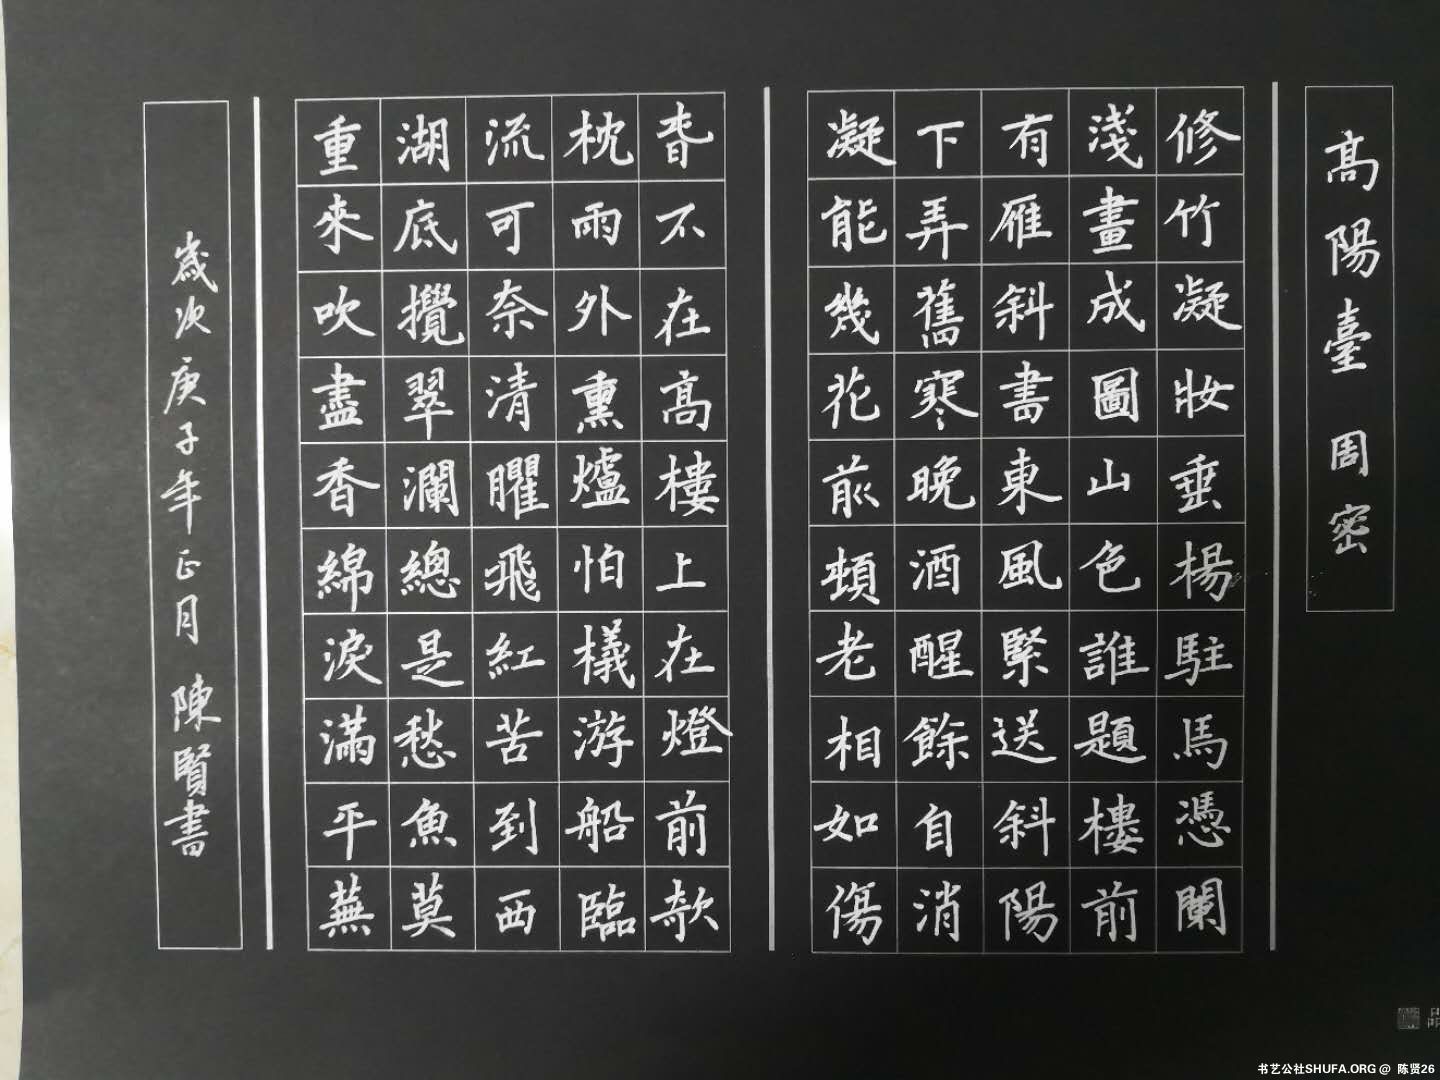 高陽臺 周密
修竹凝妝垂楊駐馬憑闌
淺畫成圖山色誰題樓前
有雁斜書東風緊送斜陽
下弄舊寒晚酒醒餘自消
凝能幾花前頓老相如傷
春不在高樓上在燈前欹
枕雨外熏爐怕檥游船臨
流可奈清臞飛紅苦到西
湖底攪翠瀾總是愁魚莫
重來吹盡香綿淚滿平蕪
歲次庚子年正月 陳賢書
书艺公社SHUFA.ORG @ 陈贤26